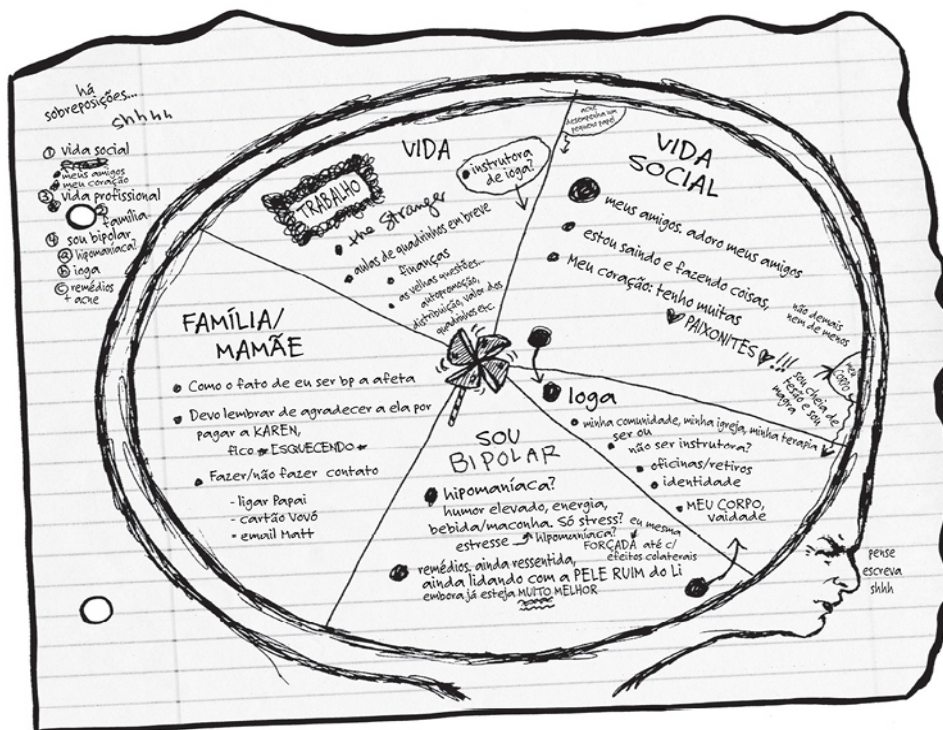 há
sobreposições...
shhhh
① vida social
meus amigos
meu coração
③ vida profissional
② família
④ sou bipolar
ⓐ hipomaníaca?
ⓑ ioga
ⓒ remédios
+ acne
VIDA
TRABALHO
instrutora
de ioga?
the Stranger
aulas de quadrinhos em breve
finanças
as velhas questões...
autopromoção,
distribuição, valor dos
quadrinhos etc.
acne
desempenha um
pequeno papel
VIDA
SOCIAL
meus amigos. adoro meus amigos
estou saindo e fazendo coisas,
não demais
nem de menos
Meu coração: tenho muitas
PAIXONITES !!!
sou cheia de
tesão e sou
magra
meu
CORPO
FAMÍLIA/
MAMÃE
Como o fato de eu ser bp a afeta
Devo lembrar de agradecer a ela por
pagar a KAREN,
fico ESQUECENDO
Fazer/não fazer contato
- ligar Papai
- cartão Vovó
- email Matt
Ioga
minha comunidade, minha igreja, minha terapia
ser ou
não ser instrutora?
oficinas/retiros
identidade
MEU CORPO,
vaidade
SOU
BIPOLAR
hipomaníaca?
humor elevado, energia,
bebida/maconha. Só stress?
estresse → hipomaníaca?
eu mesma
FORÇADA até c/
efeitos colaterais
remédios. ainda ressentida,
ainda lidando com a PELE RUIM do Li
embora já esteja MUITO MELHOR
pense
escreva
shhh